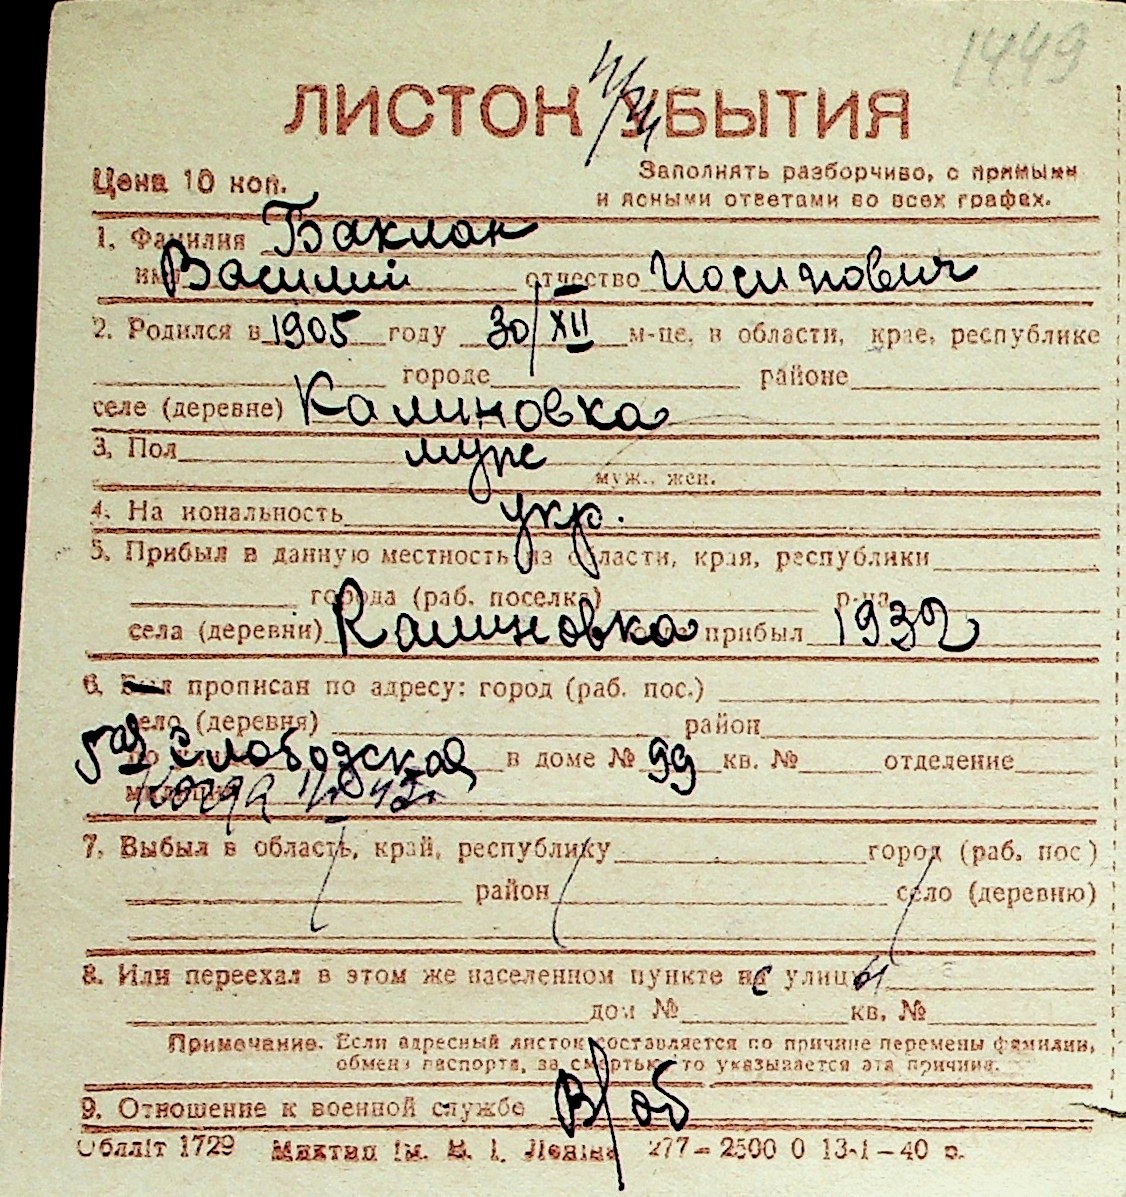 1449
ЛИСТОК УБЫТИЯ
Цена 10 коп.
Заполнять разборчиво, с прямыми
и ясными ответами во всех графах.
1. Фамилия Баклан
имя Василий отчество Иосипович
2. Родился в 1905 году 30/XII м-це, в области, крае, республике
городе районе
селе (деревне) Калиновка
3. Пол муж
муж., жен.
4. Национальность укр.
5. Прибыл в данную местность из области, края, республики
города (раб. поселка) р-на
села (деревни) Калиновка прибыл 1932
6. Был прописан по адресу: город (раб. пос.)
село (деревня) район
5ая Слободская в доме № 99 кв. № отделение
Когда
7. Выбыл в область, край, республику город (раб. пос)
район село (деревню)
8. Или переехал в этом же населенном пункте с улицы
дом № кв. №
Примечание. Если адресный листок составляется по причине перемены фамилии,
обмена паспорта, за смертью, то указывается эта причина.
9. Отношение к военной службе в/об
Облліт 1729 ім. В. І. Леніна 277–2500 0 13-I–40 р.